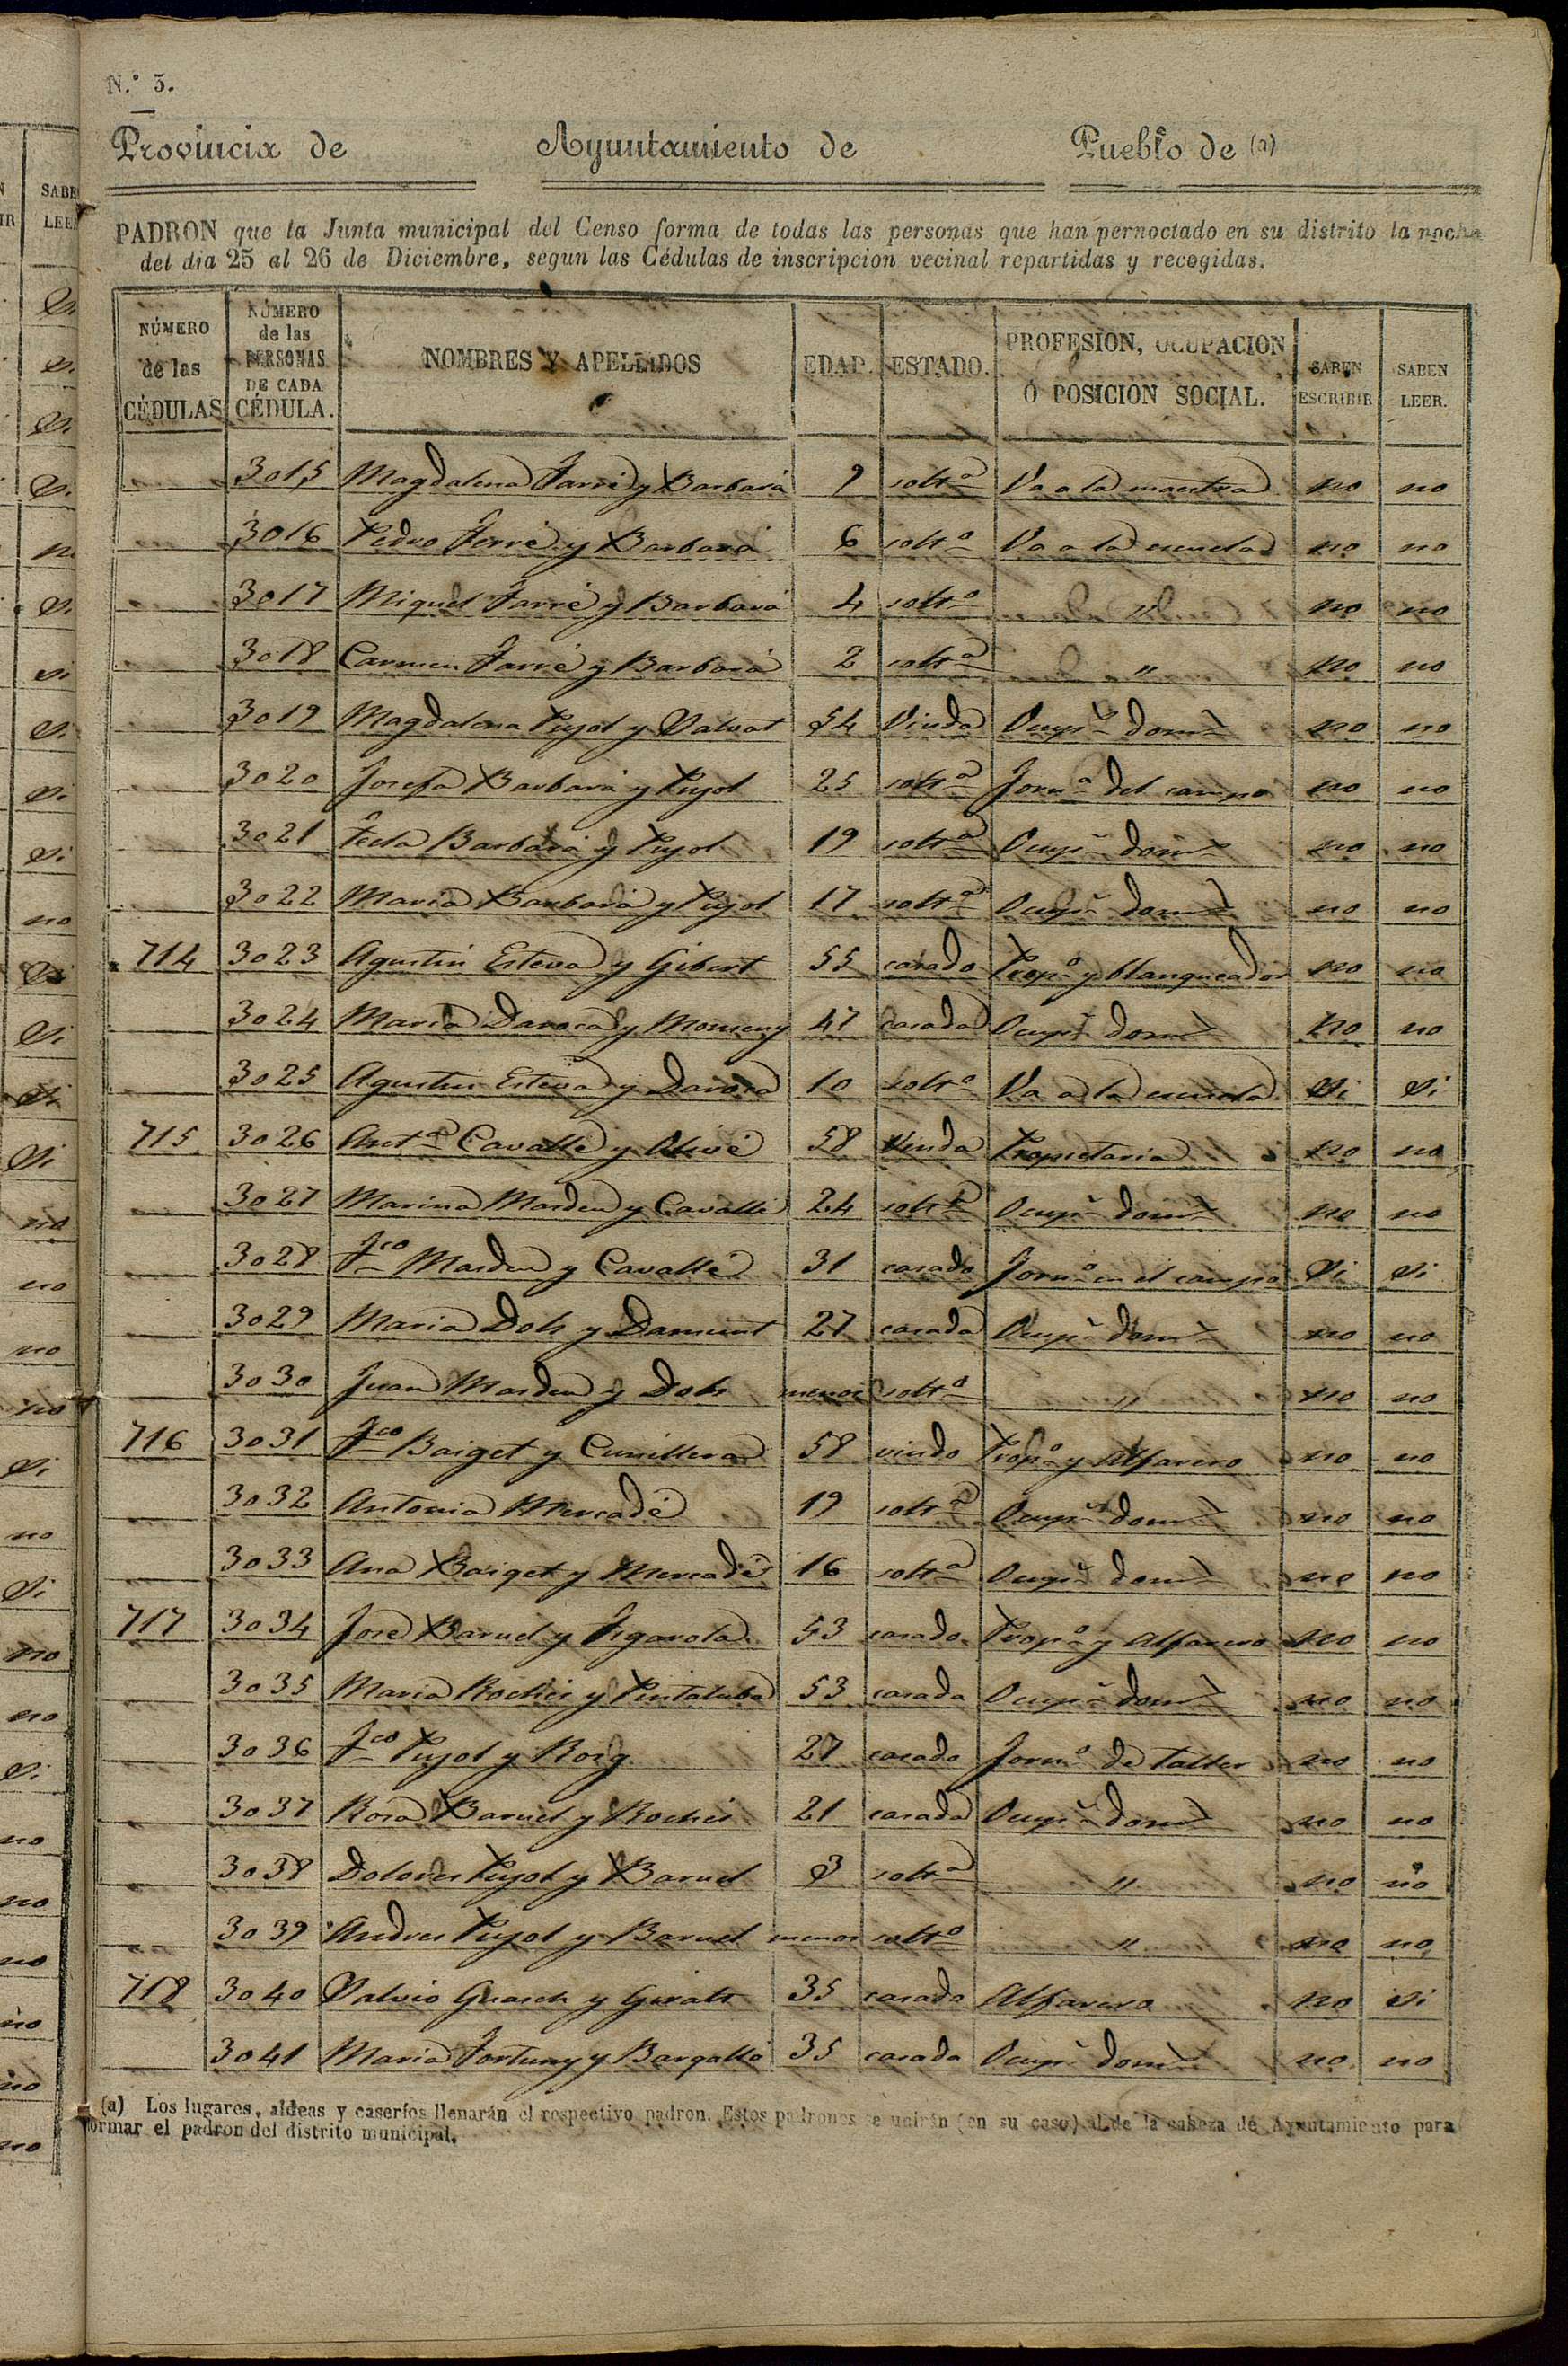 N.º 3.
Provincia de Ayuntamiento de Pueblo de (a)
PADRON que la Junta municipal del Censo forma de todas las personas que han pernoctado en su distrito la noche
del dia 25 al 26 de Diciembre, segun las Cédulas de inscripcion vecinal repartidas y recogidas.
NÚMERO de las CÉDULAS NÚMERO de las PERSONAS DE CADA CÉDULA. NOMBRES Y APELLIDOS EDAD. ESTADO. PROFESION, OCUPACION Ó POSICION SOCIAL. SABEN ESCRIBIR SABEN LEER.
3015 Magdalena Farré y Barbará 9 soltª Va a la maestra no no
3016 Pedro Farré y Barbará 6 soltº Va a la escuela no no
3017 Miquel Farré y Barbará 4 soltº " no no
3018 Carmen Farré y Barbará 2 soltª " no no
3019 Magdalena Pujol y Valvat 54 Viuda Ocupⁿ domª no no
3020 Josefa Barbará y Pujol 25 soltª Jornª del campo no no
3021 Tecla Barbará y Pujol 19 soltª Ocupⁿ domª no no
3022 Maria Barbará y Pujol 17 soltª Ocupⁿ domª no no
714 3023 Agustin Esteva y Gibert 55 casado Propº y blanqueador no no
3024 Maria Daroca y Momeny 47 casada Ocupⁿ domª no no
3025 Agustin Esteva y Daroca 10 soltº Va a la escuela si si
715 3026 Antª Cavallé y Olivé 58 Viuda Propietaria no no
3027 Marina Masdeu y Cavallé 24 soltª Ocupⁿ domª no no
3028 Fco Masdeu y Cavallé 31 casado Jornº en el campo si si
3029 Maria Dols y Damunt 27 casada Ocupⁿ domª no no
3030 Juan Masdeu y Dols menor soltº " no no
716 3031 Fco Baiget y Cunillera 58 viudo Propº y Alfarero no no
3032 Antonia Mercadé 19 soltª Ocupⁿ domª no no
3033 Ana Baiget y Mercadé 16 soltª Ocupⁿ domª no no
717 3034 José Baruel y Figarola 53 casado Propº y Alfarero no no
3035 Maria Rochés y Pintaluba 53 casada Ocupⁿ domª no no
3036 Fco Pujol y Roig 27 casado Jornº de taller no no
3037 Rosa Baruel y Rochés 21 casada Ocupⁿ domª no no
3038 Dolores Pujol y Baruel 3 soltª " no no
3039 Andres Pujol y Baruel menor soltº " no no
718 3040 Valvio Guasch y Giralt 35 casado Alfarero no si
3041 Maria Fortuny y Bargalló 35 casada Ocupⁿ domª no no
(a) Los lugares, aldeas y caseríos llenarán el respectivo padron. Estos padrones se unirán (en su caso) al de la cabeza de Ayuntamiento para
formar el padron del distrito municipal.